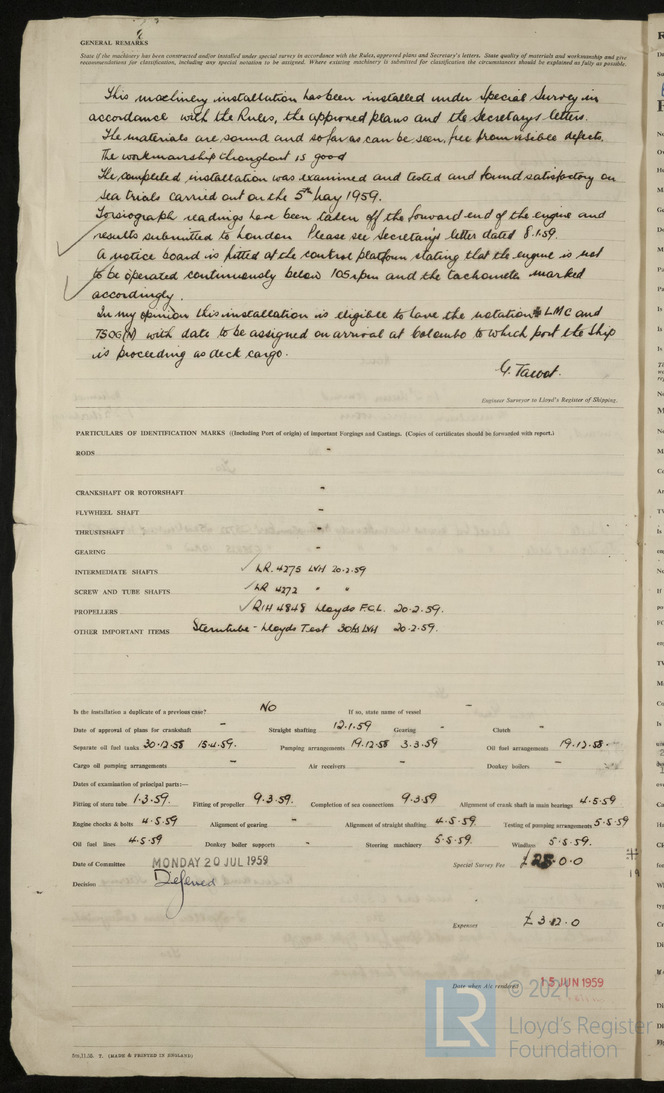 GENERAL REMARKS
State if the machinery has been constructed and/or installed under special survey in accordance with the Rules, approved plans and Secretary's letters. State quality of materials and workmanship and give
recommendations for classification, including any special notation to be assigned. Where existing machinery is submitted for classification the circumstances should be explained as fully as possible.
This machinery installation has been installed under Special Survey in
accordance with the Rules, the approved plans and the Secretary's letters.
The materials are sound and so far as can be seen, free from visible defects.
The workmanship throughout is good
The completed installation was examined and tested and found satisfactory on
sea trials carried out on the 5th May 1959.
Torsiograph readings have been taken off the forward end of the engine and
results submitted to London Please see Secretary's letter dated 8.1.59.
A notice board is fitted at the control platform stating that the engine is not
to be operated continuously below 105 rpm and the tachometer marked
accordingly.
In my opinion this installation is eligible to have the notation LMC and
TSOG(N) with date to be assigned on arrival at Colombo to which port the ship
is proceeding as deck cargo.
Engineer Surveyor to Lloyd's Register of Shipping.
PARTICULARS OF IDENTIFICATION MARKS (Including Port of origin) of important Forgings and Castings. (Copies of certificates should be forwarded with report.)
RODS -
CRANKSHAFT OR ROTORSHAFT -
FLYWHEEL SHAFT -
THRUSTSHAFT -
GEARING -
INTERMEDIATE SHAFTS LR. 4275 LVH 20.2.59
SCREW AND TUBE SHAFTS LR 4272 " "
PROPELLERS RIH 4848 Lloyds F.G.L. 20.2.59.
OTHER IMPORTANT ITEMS Sterntube - Lloyds Test LVH 20.2.59.
Is the installation a duplicate of a previous case? NO If so, state name of vessel -
Date of approval of plans for crankshaft - Straight shafting 12.1.59 Gearing - Clutch -
Separate oil fuel tanks 30.12.58 15.4.59. Pumping arrangements 19.12.58 3.3.59 Oil fuel arrangements 19.12.58.
Cargo oil pumping arrangements - Air receivers - Donkey boilers -
Dates of examination of principal parts:—
Fitting of stern tube 1.3.59. Fitting of propeller 9.3.59. Completion of sea connections 9.3.59 Alignment of crank shaft in main bearings 4.5.59
Engine chocks & bolts 4.5.59 Alignment of gearing - Alignment of straight shafting 4.5.59. Testing of pumping arrangements 5.5.59
Oil fuel lines 4.5.59 Donkey boiler supports - Steering machinery 5.5.59. Windlass 5.5.59.
Date of Committee MONDAY 20 JUL 1959 Special Survey Fee £25.0.0
Decision Deferred
Expenses £3.12.0
Date when A/c rendered 15 JUN 1959
© 2021
LR
Lloyd's Register
Foundation
T. (MADE & PRINTED IN ENGLAND)